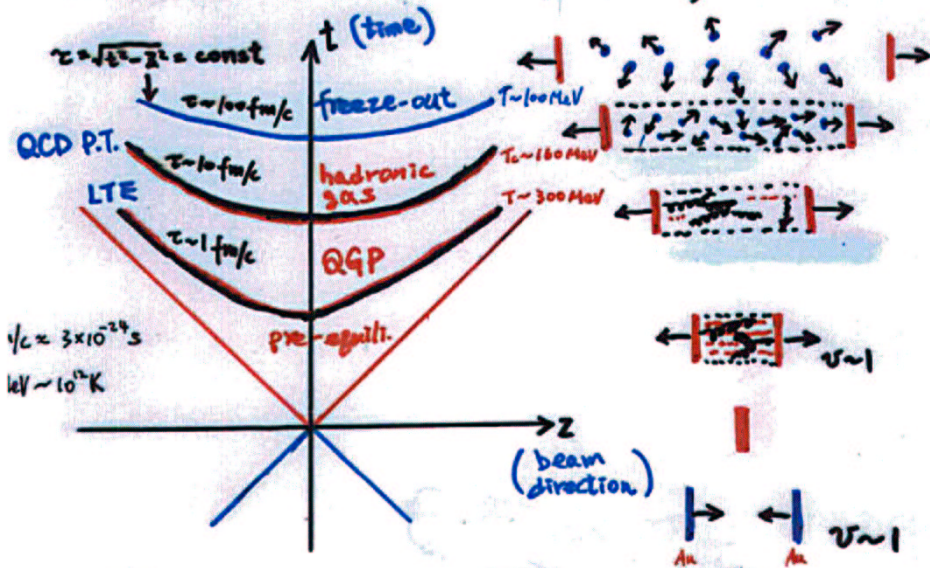 t (time)
τ=√t²-z² = const
τ~100fm/c
freeze-out
T~100MeV
QCD P.T.
τ~10fm/c
hadronic
gas
Tc~160MeV
LTE
T~300MeV
τ~1fm/c
QGP
/c ≈ 3×10⁻²⁴s
pre-equili.
v~1
eV~10¹²K
z
(beam
direction)
v~1
Au
Au